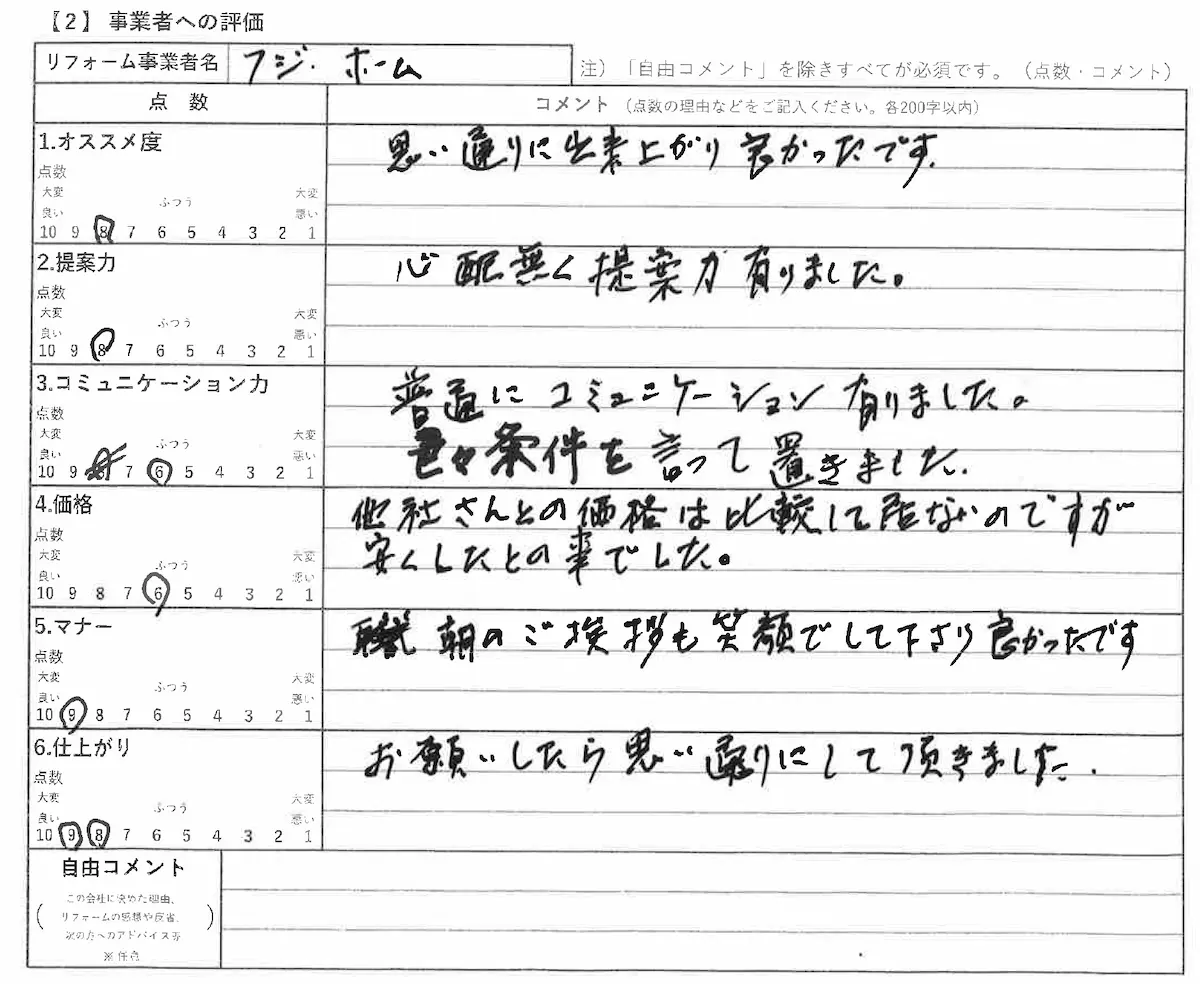 【2】 事業者への評価
リフォーム事業者名 フジ・ホーム
注）「自由コメント」を除きすべてが必須です。（点数・コメント）
点 数
コメント（点数の理由などをご記入ください。各200字以内）
1.オススメ度
思い通りに出来上がり良かったです.
点数
大変 大変
ふつう
良い 悪い
10 9 8 7 6 5 4 3 2 1
2.提案力
心配無く提案力有りました。
点数
大変 大変
ふつう
良い 悪い
10 9 8 7 6 5 4 3 2 1
3.コミュニケーション力
普通にコミュニケーション有りました。
色々条件を言って置きました.
点数
大変 大変
ふつう
良い 悪い
10 9 8 7 6 5 4 3 2 1
4.価格
他社さんとの価格は比較して居ないのですが
安くしたとの事でした。
点数
大変 大変
ふつう
良い 悪い
10 9 8 7 6 5 4 3 2 1
5.マナー
朝のご挨拶も笑顔でして下さり良かったです
点数
大変 大変
ふつう
良い 悪い
10 9 8 7 6 5 4 3 2 1
6.仕上がり
お願いしたら思い通りにして頂きました.
点数
大変 大変
ふつう
良い 悪い
10 9 8 7 6 5 4 3 2 1
自由コメント
この会社に決めた理由、
リフォームの感想や反省、
次の方へのアドバイス等
※任意